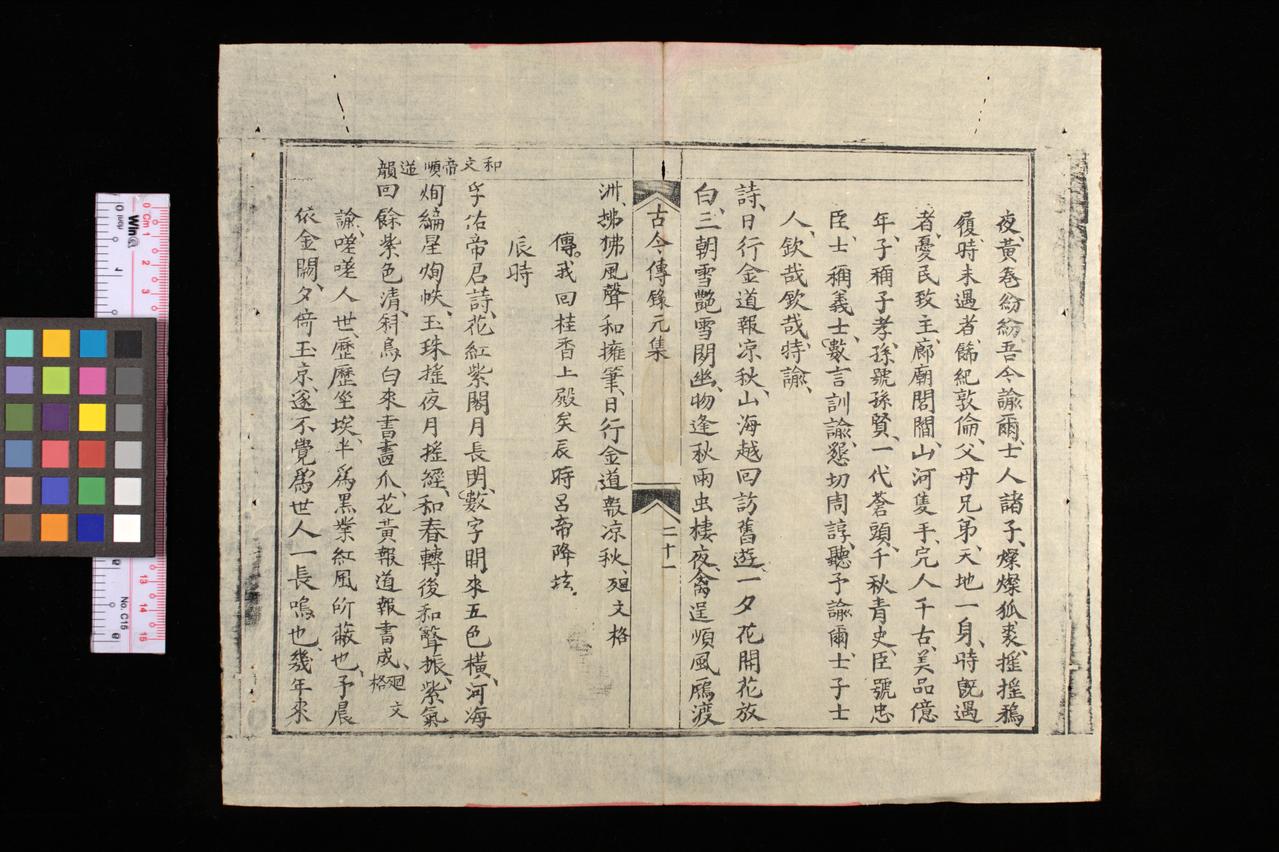 夜、黃卷紛紛、吾今諭爾、士人諸子、燦燦狐裘、摇摇鵷
履、時未遇者、飾紀敦倫、父母兄弟、天地一身、時既遇
者、憂民致主、廊廟閭閻、山河隻手、完人千古、美品億
年、子稱子孝、孫號孫賢、一代蒼頭、千秋青史、臣號忠
臣、士稱義士、數言訓諭、懇切周諄、聽予諭爾、士子士
人、欽哉欽哉、特諭、
詩、日行金道報凉秋、山海越回訪舊遊、一夕花開花放
白、三朝雪艷雪開幽、物逢秋雨虫棲夜、禽逞順風鴈渡
古今傳錄元集
二十一
洲、拂拂風聲和擁筆、日行金道報凉秋、廻文格
傳。我回桂香上殿矣辰時呂帝降坛。
辰時
和文帝順道韻
孚佑帝君詩、花紅紫閣月長明、數字開來五色橫、河海
炯編星炯帙、玉珠摇夜月摇經、和春轉後和聲振、紫氣
回餘紫色清、科鳥白來書畫爪、花黃報道報書成、廻文格
諭、嘆嗟人世、歷歷坐埃、半爲黑業紅風所蔽也、予晨
依金闕、夕倚玉京、遂不覺爲世人一長嗚也、幾年來
No. C15
Cm